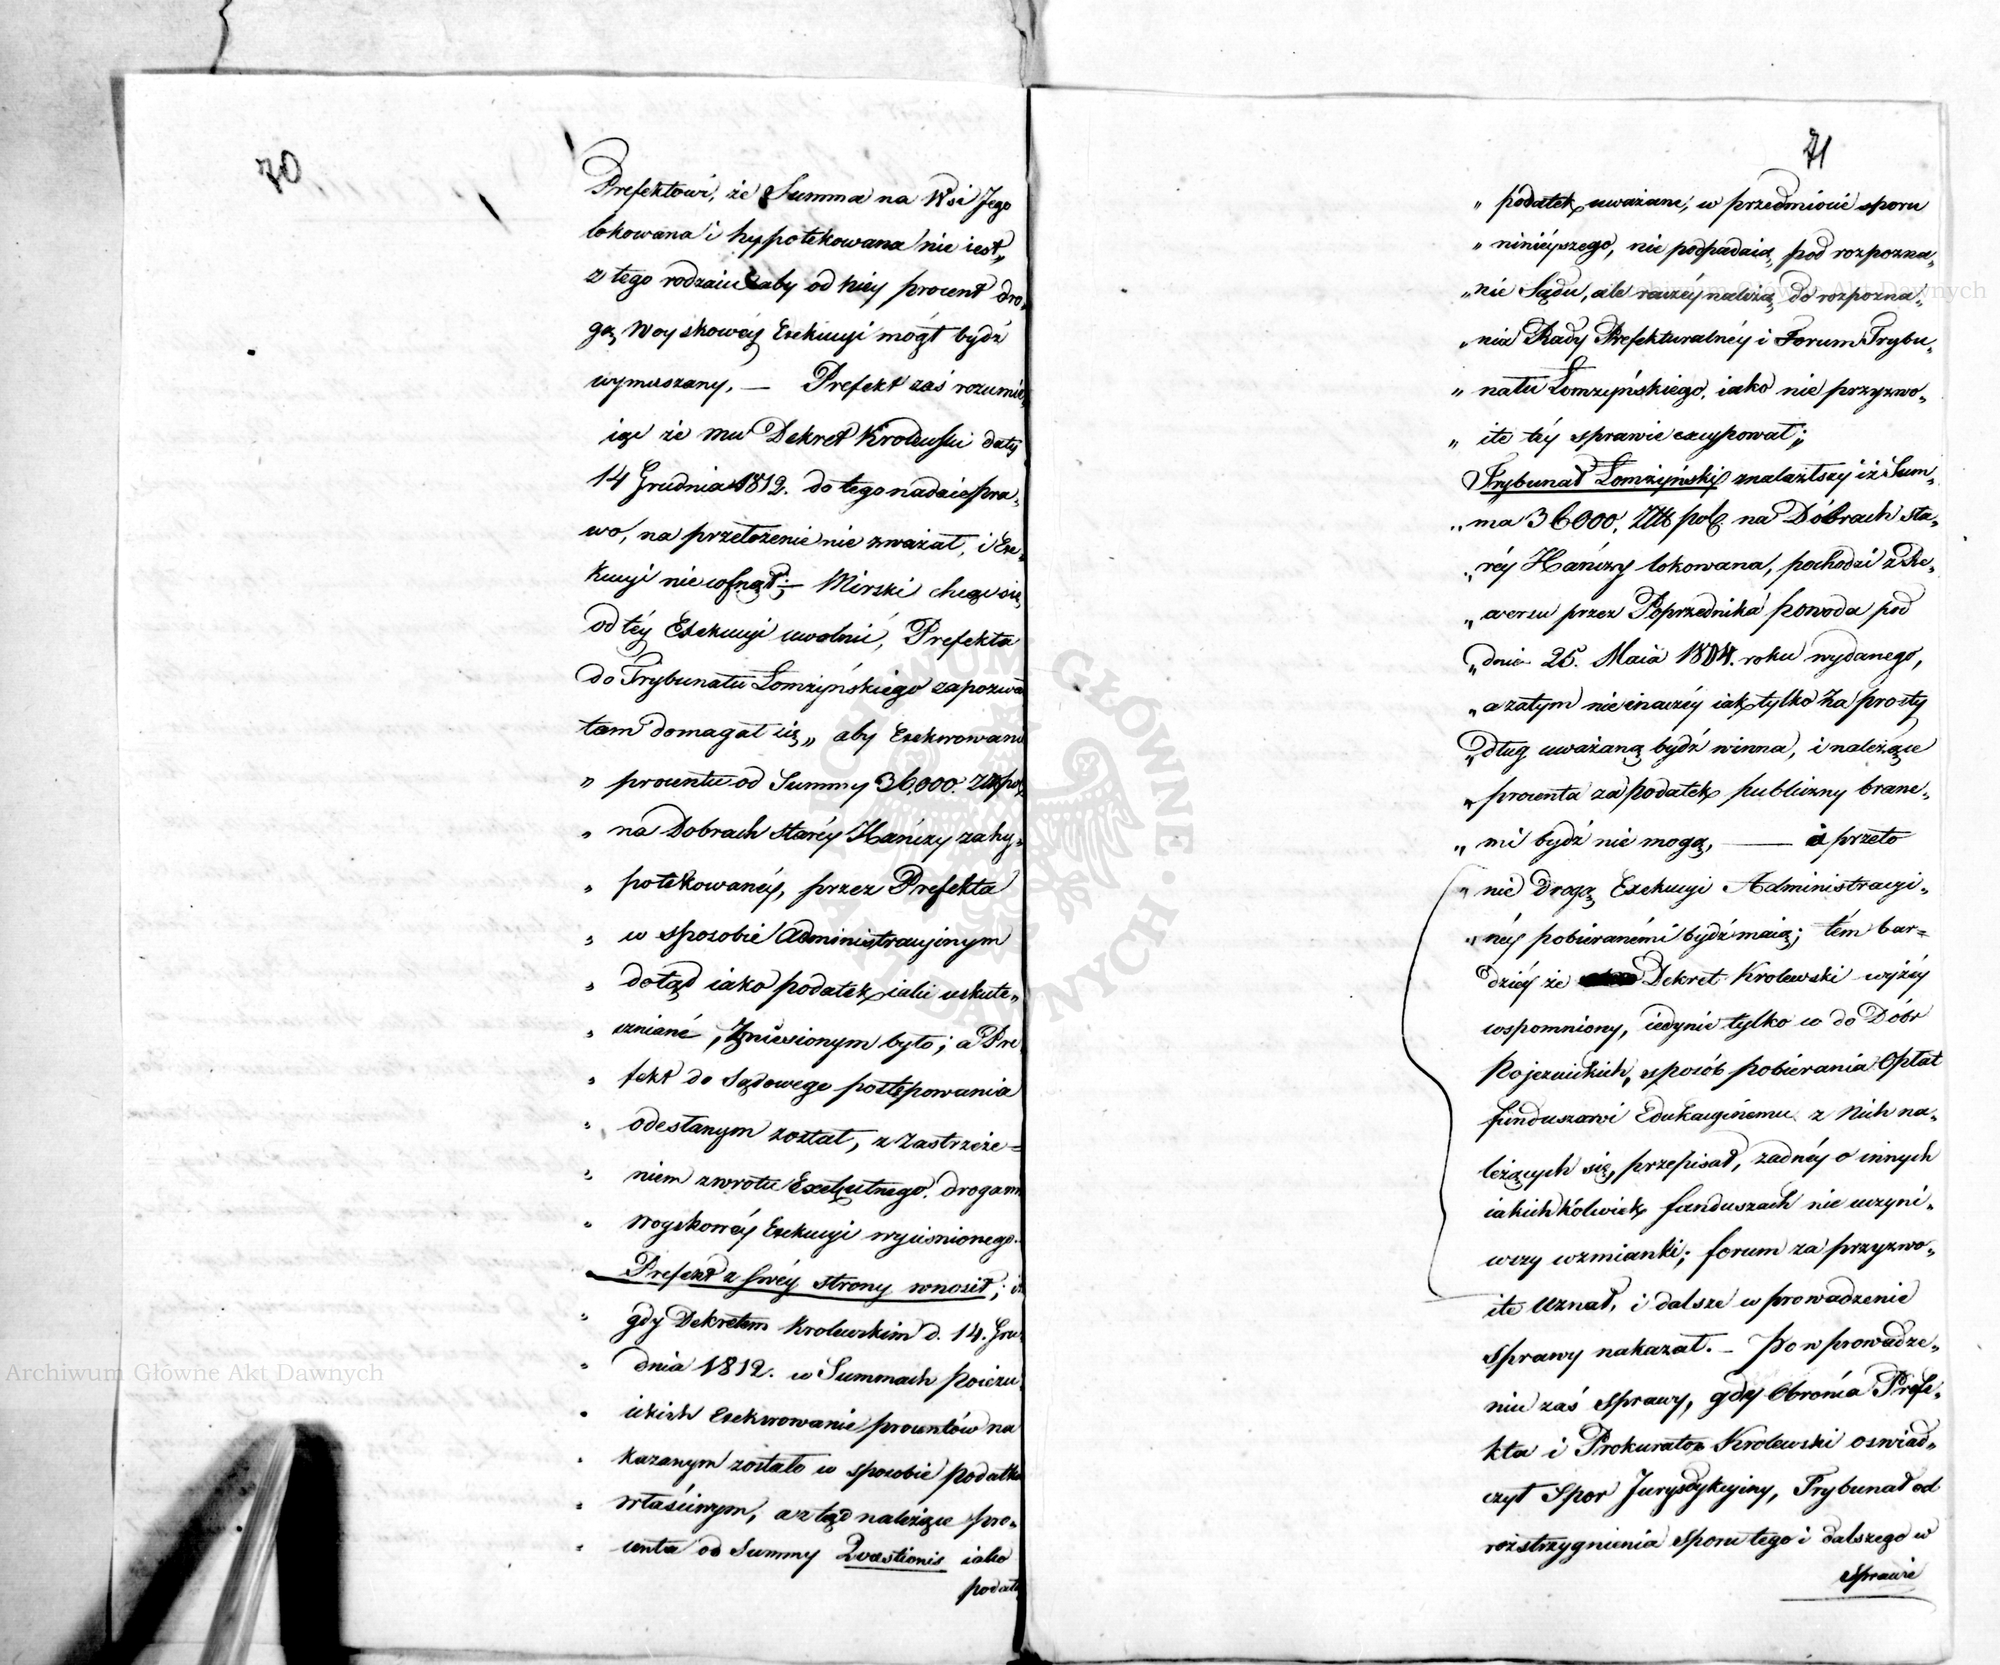 70
Prefektowi, że Summa na Wsi Jego
lokowana i hypotekowana nie iest„
z tego rodzaiu aby od niey procent dro„
gą Woyskowéy Exekucyi mógł bydź
wymuszany, — Prefekt zaś rozumie„
iąc że mu Dekret Krolewski daty
14 Grudnia 1812. do tego nadaie pra„
wo, na przełożenie nie zważał, i Exe„
kucyi nie cofnął; — Mirski chcąc się
od téy Exekucyi uwolnić, Prefekta
do Trybunału Łomżyńskiego zapozwał
tam domagał się „ aby Exekwowanie
„ procentu od Summy 36,000. Złł pol
„ na Dobrach Staréy Hańczy zahy„
„ potekowanéy, przez Prefekta
„ w sposobie Administracyinym
„ dotąd iako podatek iaki uskute„
„ czniane, Zniesionym było; a Pre
„ fekt do Sądowego postępowania
„ odesłanym został, z zastrzeże=
„ niem zwrotu Exekutnego, drogami
„ Woyskowéy Exekucyi wyciśnionego.
Prefekt z swéy strony wnosił; iż
„ gdy Dekretem Krolewskim d. 14. Gru
„ dnia 1812. w Summach poiezu
„ ickich Exekwowanie procentów na
„ kazanym zostało w sposobie podatko
„ właściwym, a ztąd należące pro„
„ centa od Summy Quaestionis iako
podatek
71
„ podatek uważane, w przedmiocie sporu
„ ninieyszego, nie podpadaią pod rozpozna„
„ nie Sądu, ale raczéy należą do rozpozna„
„ nia Rady Prefekturalnéy i Forum Trybu„
„ nału Łomżyńskiego, iako nie przyzwo„
„ ite téy sprawie excypował;
Trybunał Łomżyński znalazłszy iż Sum„
„ ma 36000. Złł pol. na Dóbrach sta„
„ réy Hańczy lokowana, pochodzi z Re„
„ wersu przez Poprzednika powoda pod
„ dnia 25. Maia 1804. roku wydanego,
„ a zatym nie inaczéy iak tylko za prosty
„ dług uważaną bydź winna, i należące
„ procenta za podatek publiczny brane„
„ mi bydź nie mogą, — i przeto
„ nie drogą Exekucyi Administracyi„
„ néy pobieranémi bydź maią; tém bar=
dziéy że Dekret Krolewski wyżéy
wspomniony, iedynie tylko w do Dóbr
Pojezuickich, sposób pobierania Opłat
funduszowi Edukacyinemu z Nich na„
leżących się, przepisał, żadnéy o innych
iakichkólwiek funduszach nie uczyni„
wszy wzmianki; forum za przyzwo„
ite Uznał, i dalsze wprowadzenie
sprawy nakazał. — Po wprowadze„
niu zaś sprawy, gdy Obrońca Prefe„
kta i Prokurator Krolewski oswiad„
czył Spor Jurysdykcyiny, Trybunał od
rozstrzygnienia Sporu tego i dalszego w
Sprawie
Archiwum Główne Akt Dawnych
Archiwum Główne Akt Dawnych
ARCHIWUM GŁÓWNE · AKT DAWNYCH ·